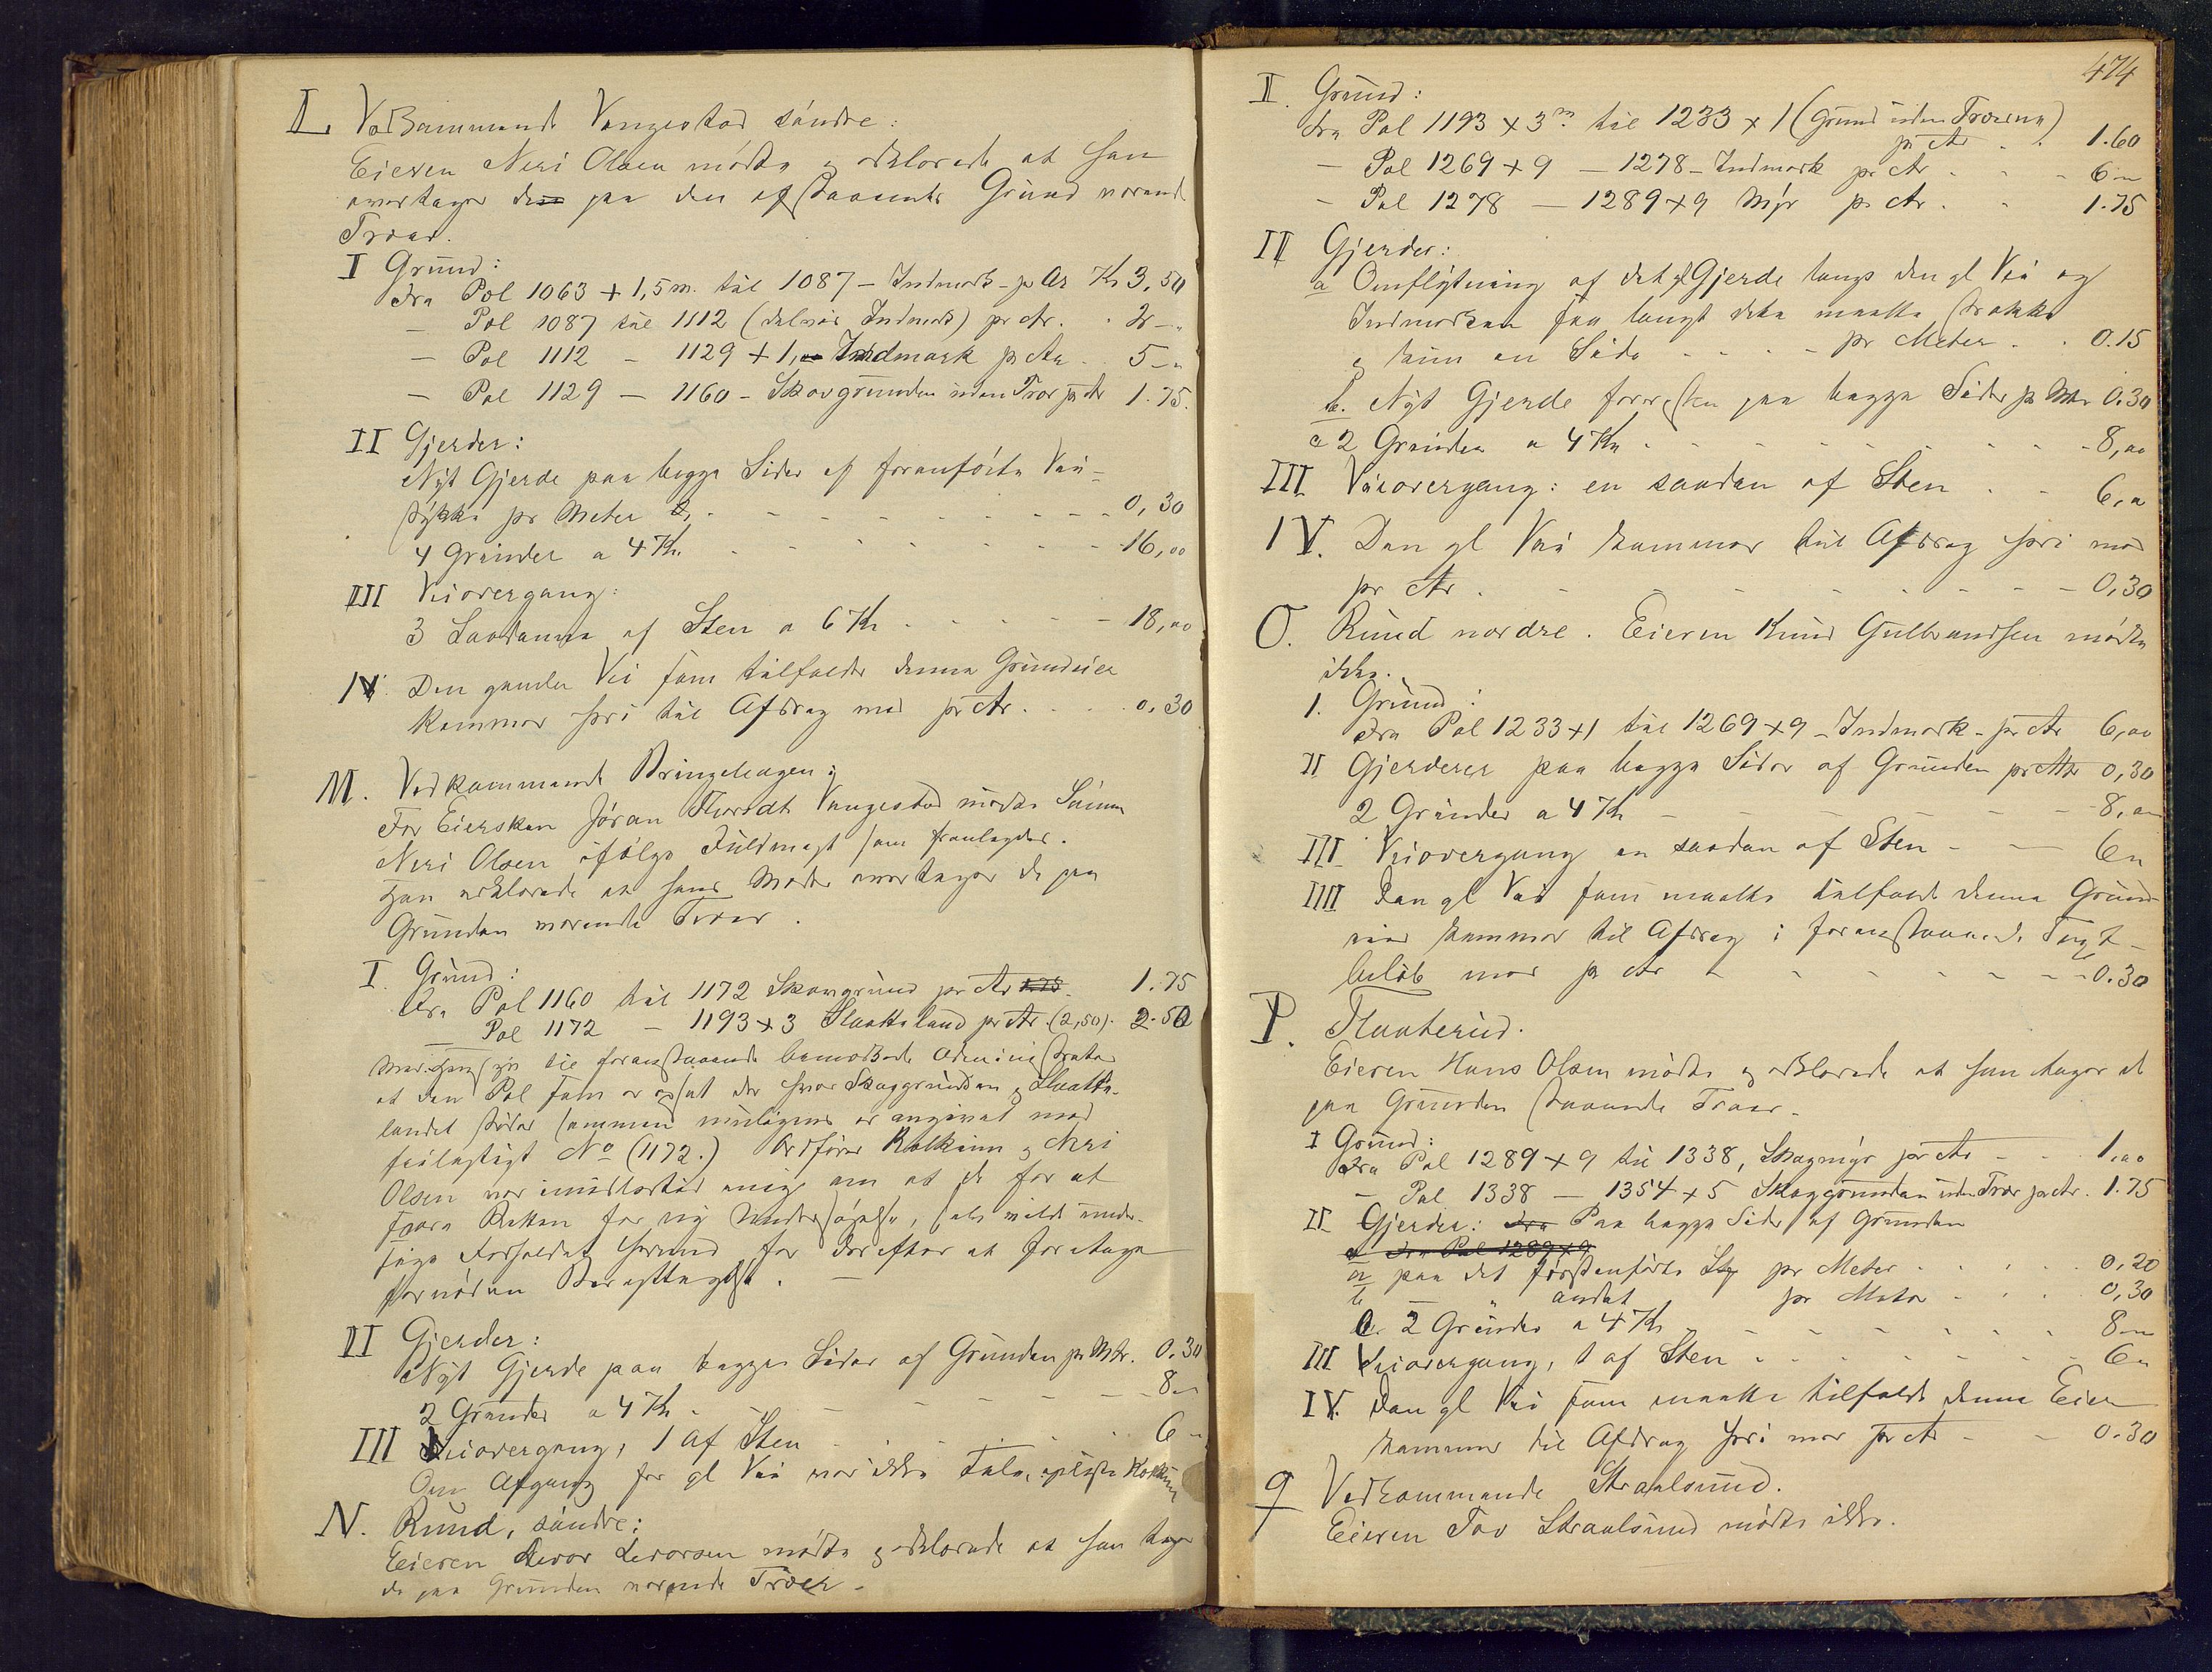 L Vedkommende Vangestad söndre:
Eieren Neri Olsen mödte og erklærede at han
overtager de paa den afstaaende Grund værende
Træer.
I Grund:
Fra Pæl 1063 + 1,5 m. til 1087 – Indmark – pr Ar Kr 3,50
– Pæl 1087 til 1112 (delvis Indmark) pr Ar. . 2 –
– Pæl 1112 – 1129 + 1, Indmark pr Ar . 5 –
– Pæl 1129 – 1160 – Skovgrunden uden Træer pr Ar 1.75.
II Gjerder:
Nyt Gjerde paa begge Sider af foranförte Vei-
stykke pr Meter - - - - 0,30
4 Grinder a 4 Kr. - - - - 16,00
III Veiovergang:
3 Saadanne af Sten a 6 Kr - - - - 18,00
IV. Den gamle Vei som tilfalder denne Grundeier
kommer heri til Afdrag med pr Ar . . . 0,30
M. Vedkommende Bringehagen:
For Eiersken Jöran Vangestad mödte Sönnen
Neri Olsen ifölge Fuldmagt som fremlagdes.
Han erklærede at hans Moder overtager de paa
Grunden værende Træer.
I. Grund:
Fra Pæl 1160 til 1172 Skovgrund pr Ar 1.75
– Pæl 1172 – 1193 + 3 Slaatteland pr Ar (2,50). 2.50
Med Hensyn til foranstaaende bemærkede
at den Pæl som er opsat der hvor Skoggrunden og Slaatte-
landet støder sammen muligens er angivet med
feilagtigt No (1172.) Ordförer og Neri
Olsen var imidlertid enige om at de for at
spare Retten for ny Undersögelse, selv vilde under-
söge Forholdet for derefter at foretage
fornöden Berigtigelse. –
II Gjerder:
Nyt Gjerde paa begge Sider af Grunden pr Mtr. 0.30
2 Grinder a 4 Kr - - - - 8 –
III Veiovergang, 1 af Sten . . . . 6 –
Om Afgang for gl Vei var ikke Tale, oplyste
N. Ruud, söndre:
Eieren Levor Levorsen mödte og erklærede at han tager
de paa Grunden værende Træer –
474
I. Grund:
Fra Pæl 1193 + 3 m. til 1233 + 1 (Grund uden Træerne)
pr Ar . . 1.60
– Pæl 1269 + 9 – 1278 – Indmark pr Ar . . 6 –
– Pæl 1278 – 1289 + 9 Myr pr Ar . . 1.75
II Gjerder:
a Omflytning af det gl Gjerde langs den gl Vei og
Indmarken saa langt dette maatte strække
og kun en Side - - - - pr Meter . . 0.15
b. Nyt Gjerde forresten paa begge Sider pr Mtr 0.30
c 2 Grinder a 4 Kr - - - - 8,00
III Veiovergang: en saadan af Sten . . 6,00
IV. Den gl Vei kommer til Afdrag heri med
pr Ar . - - - - 0,30
O. Ruud nordre. Eieren Knud Gulbrandsen mödte
ikke.
1. Grund:
Fra Pæl 1233 + 1 til 1269 + 9 – Indmark – pr Ar 6,00
II Gjerder paa begge Sider af Grunden pr Mtr 0,30
2 Grinder a 4 Kr - - - - 8,00
III Veiovergang en saadan af Sten - - 6 –
IIII Den gl Vei som maatte tilfalde denne Grund-
eier kommer til Afdrag i foranstaaende Taxt-
beløb med pr Ar - - - - 0.30
P. Flaaterud.
Eieren Hans Olsen mödte og erklærede at han tager de
paa Grunden staaende Træer.
I Grund:
Fra Pæl 1289 + 9 til 1338, Skogmyr pr Ar - - 1,00
– Pæl 1338 – 1354 + 5 Skoggrunden uden Træer pr Ar. 1.75
II Gjerder: Fra Paa begge Sider af Grunden
a Fra Pæl 1289 + 9
a paa det förstanförte Sty pr Meter . . . 0,20
b – " andet pr Meter - . . 0,30
c. 2 Grinder a 4 Kr - - - - 8 –
III Veiovergang, 1 af Sten - - - - 6 –
IV. Den gl Vei som maatte tilfalde denne Eier
kommer til Afdrag heri med pr Ar - - 0.30
Q Vedkommende Stralsund.
Eieren Tov Straalsund mödte ikke.